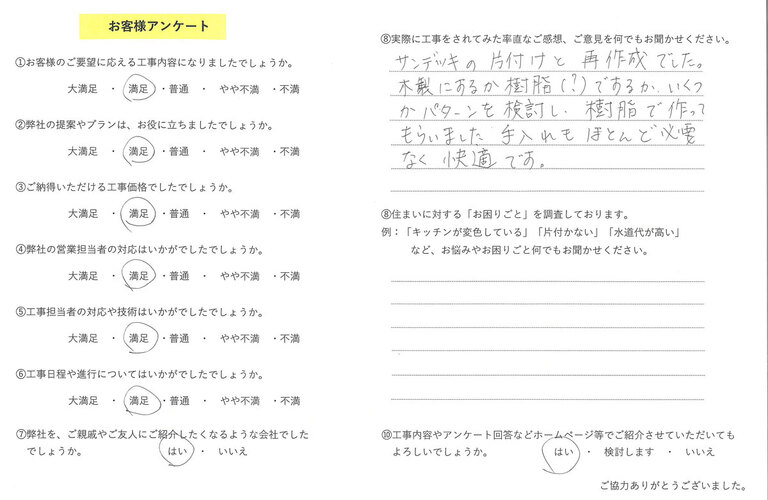 お客様アンケート
①お客様のご要望に応える工事内容になりましたでしょうか。
大満足 ・ 満足 ・普通 ・ やや不満 ・不満
②弊社の提案やプランは、お役に立ちましたでしょうか。
大満足 ・ 満足 ・普通 ・ やや不満 ・不満
③ご納得いただける工事価格でしたでしょうか。
大満足 ・ 満足 ・普通 ・ やや不満 ・不満
④弊社の営業担当者の対応はいかがでしたでしょうか。
大満足 ・ 満足 ・普通 ・ やや不満 ・不満
⑤工事担当者の対応や技術はいかがでしたでしょうか。
大満足 ・ 満足 ・普通 ・ やや不満 ・不満
⑥工事日程や進行についてはいかがでしたでしょうか。
大満足 ・ 満足 ・普通 ・ やや不満 ・不満
⑦弊社を、ご親戚やご友人にご紹介したくなるような会社でした
でしょうか。 はい ・ いいえ
⑧実際に工事をされてみた率直なご感想、ご意見を何でもお聞かせください。
サンデッキの片付けと再作成でした。
木製にするか樹脂(?)であるか、いくつ
かパターンを検討し、樹脂で作って
もらいました 手入れもほとんど必要
なく快適です。
⑧住まいに対する「お困りごと」を調査しております。
例：「キッチンが変色している」「片付かない」「水道代が高い」
など、お悩みやお困りごと何でもお聞かせください。
⑩工事内容やアンケート回答などホームページ等でご紹介させていただいても
よろしいでしょうか。 はい ・ 検討します ・ いいえ
ご協力ありがとうございました。